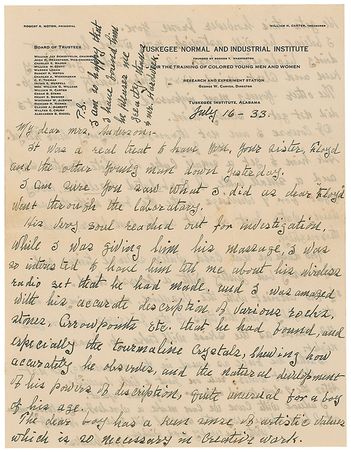 ROBERT R. MOTON, PRINCIPAL
WILLIAM H. CARTER, TREASURER
BOARD OF TRUSTEES
TUSKEGEE NORMAL AND INDUSTRIAL INSTITUTE
FOUNDED BY BOOKER T. WASHINGTON
FOR THE TRAINING OF COLORED YOUNG MEN AND WOMEN
RESEARCH AND EXPERIMENT STATION
GEORGE W. CARVER, DIRECTOR
TUSKEGEE INSTITUTE, ALABAMA
July 16-33.
P.S.
I am so happy that
I have pleased him
he pleases me
greatly thank
Mr. Hardwick.
My dear Mrs. Anderson:-
It was a real treat to have you, your sister, Floyd
and the other young man down yesterday.
I am sure you saw what I did as dear Floyd
went through the laboratory.
His very soul reached out for investigation,
While I was giving him his massage, I was
so interested to have him tell me about his wireless
radio set that he had made, and I was amazed
with his accurate description of various rocks,
stones, arrowpoints etc. that he had found, and
especially the tourmaline crystals, shewing how
accurately he observes, and the natural development
of his powers of description, quite unusual for a boy
of his age.
The dear boy has a keen sense of artistic values
which is so necessary in creative work.